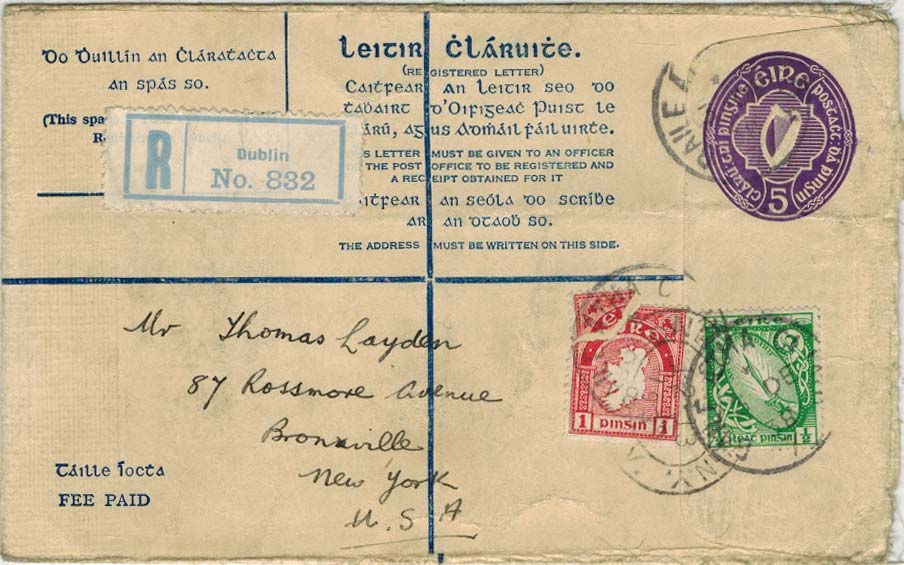 Do Ḋuillín an Ċláraṫaċta
an spás so.
(This spa
R
R
Dublin
No. 832
Leitir Ċláruiṫe.
(REGISTERED LETTER)
Caitfear an leitir seo do
ṫaḃairt d'Oifigeaċ Puist le
árú, agus admáil fáil uirṫe.
IS LETTER MUST BE GIVEN TO AN OFFICER
THE POST OFFICE TO BE REGISTERED AND
A RECEIPT OBTAINED FOR IT
aitfear an seóla do scríbe
ar an dtaoḃ so.
THE ADDRESS MUST BE WRITTEN ON THIS SIDE.
éire
postaċt: dá pingin
cláru: trí pingne
5
Mr Thomas Layden
87 Rossmore Avenue
Bronxville
New York
U. S A
Táille íocta
FEE PAID
1 pinsin 1
leat pinsin ½